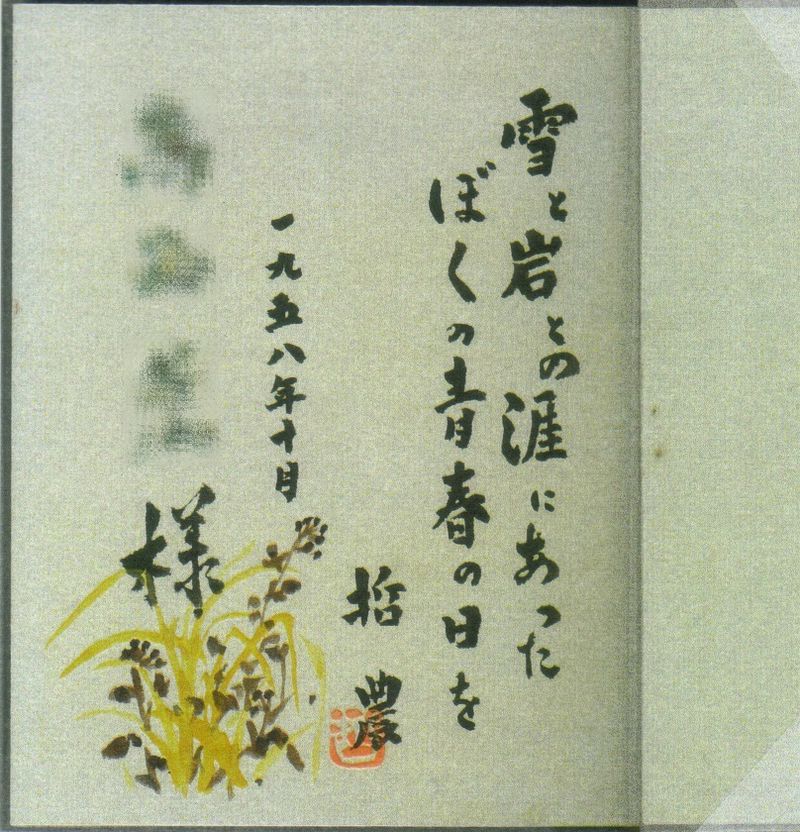 雪と岩との涯にあった
ぼくの青春の日を
哲農
一九五八年十月
様